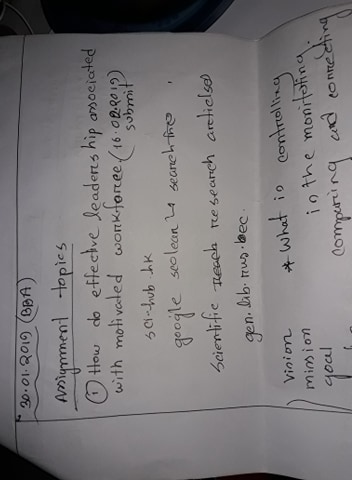 30.01.2019 (BBA)
Assignment topics
① How do effective leadership associated
with motivated workforce. (16.02.2019)
submit
sci-hub.hk
google scolean ↳ search
scientific research articles
gen.lib.rus.bec.
vision
mission
goal
* What is controlling
in the monitoting.
comparing and correcting